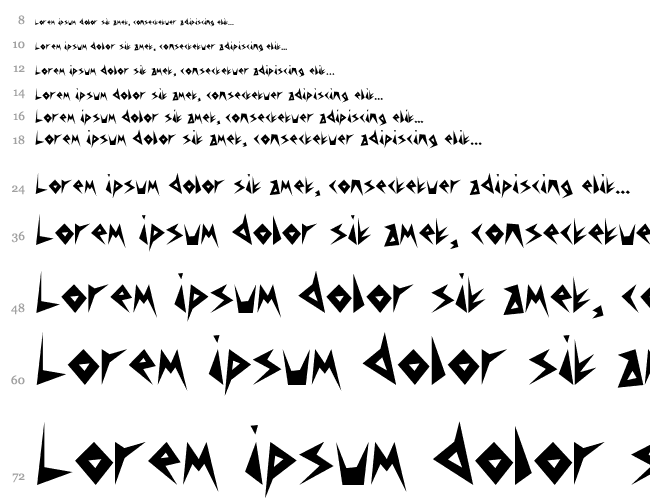 8 Lorem ipsum dolor sit amet, consectetuer adipiscing elit...
10 Lorem ipsum dolor sit amet, consectetuer adipiscing elit...
12 Lorem ipsum dolor sit amet, consectetuer adipiscing elit...
14 Lorem ipsum dolor sit amet, consectetuer adipiscing elit...
16 Lorem ipsum dolor sit amet, consectetuer adipiscing elit...
18 Lorem ipsum dolor sit amet, consectetuer adipiscing elit...
24 Lorem ipsum dolor sit amet, consectetuer adipiscing elit...
36 Lorem ipsum dolor sit amet, consectetue
48 Lorem ipsum dolor sit amet, co
60 Lorem ipsum dolor sit a
72 Lorem ipsum dolor s